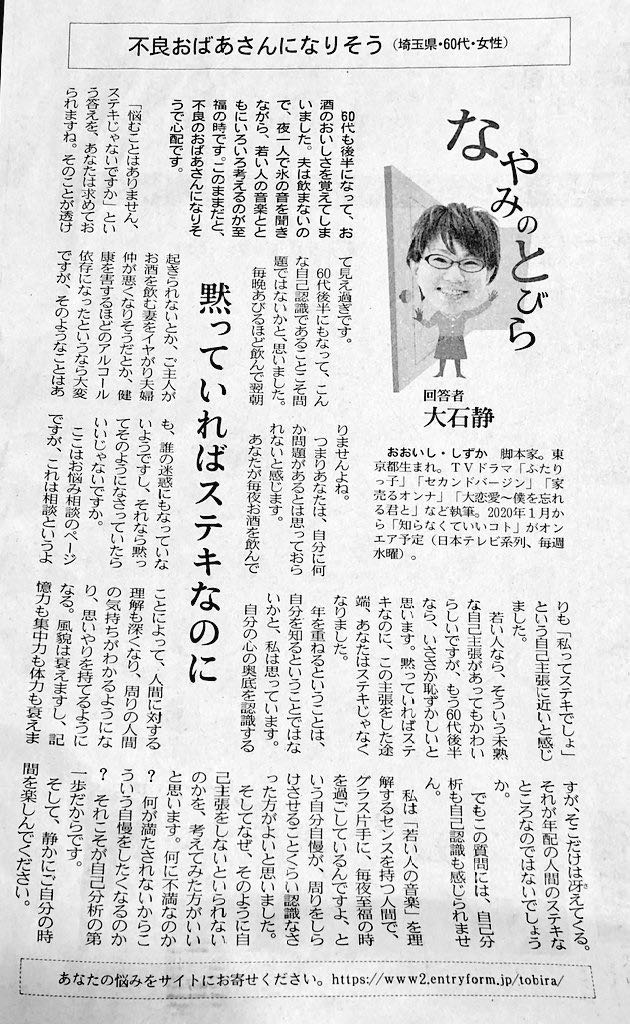 不良おばあさんになりそう（埼玉県・60代・女性）
なやみのとびら
回答者
大石静
おおいし・しずか　脚本家。東
京都生まれ。ＴＶドラマ「ふたり
っ子」「セカンドバージン」「家
売るオンナ」「大恋愛～僕を忘れ
る君と」など執筆。2020年１月か
ら「知らなくていいコト」がオン
エア予定（日本テレビ系列、毎週
水曜）。
60代も後半になって、お
酒のおいしさを覚えてしま
いました。夫は飲まないの
で、夜一人で氷の音を聞き
ながら、若い人の音楽とと
もにいろいろ考えるのが至
福の時です。このままだと、
不良のおばあさんになりそ
うで心配です。
黙っていればステキなのに
「悩むことはありません、
ステキじゃないですか」とい
う答えを、あなたは求めてお
られますね。そのことが透け
て見え過ぎです。
60代後半にもなって、こん
な自己認識であることこそ問
題ではないかと、思いました。
毎晩あびるほど飲んで翌朝
起きられないとか、ご主人が
お酒を飲む妻をイヤがり夫婦
仲が悪くなりそうだとか、健
康を害するほどのアルコール
依存になったというなら大変
ですが、そのようなことはあ
りませんよね。
つまりあなたは、自分に何
か問題があるとは思っておら
れないと感じます。
あなたが毎夜お酒を飲んで
も、誰の迷惑にもなっていな
いようですし、それなら黙っ
てそのようになさっていたら
いいじゃないですか。
ここはお悩み相談のページ
ですが、これは相談というよ
りも「私ってステキでしょ」
という自己主張に近いと感じ
ました。
若い人なら、そういう未熟
な自己主張があってもかわい
らしいですが、もう60代後半
なら、いささか恥ずかしいと
思います。黙っていればステ
キなのに、この主張をした途
端、あなたはステキじゃなく
なりました。
年を重ねるということは、
自分を知るということではな
いかと、私は思っています。
自分の心の奥底を認識する
ことによって、人間に対する
理解も深くなり、周りの人間
の気持ちがわかるようにな
り、思いやりを持てるように
なる。風貌は衰えますし、記
憶力も集中力も体力も衰えま
すが、そこだけは冴えてくる。
それが年配の人間のステキな
ところなのではないでしょう
か。
でもこの質問には、自己分
析も自己認識も感じられませ
ん。
私は「若い人の音楽」を理
解するセンスを持つ人間で、
グラス片手に、毎夜至福の時
を過ごしているんですよ、と
いう自分自慢が、周りをしら
けさせることくらい認識なさ
った方がよいと思いました。
そしてなぜ、そのように自
己主張をしないといられない
のかを、考えてみた方がいい
と思います。何に不満なのか
？　何が満たされないからこ
ういう自慢をしたくなるのか
？　それこそが自己分析の第
一歩だからです。
そして、静かにご自分の時
間を楽しんでください。
あなたの悩みをサイトにお寄せください。https://www2.entryform.jp/tobira/